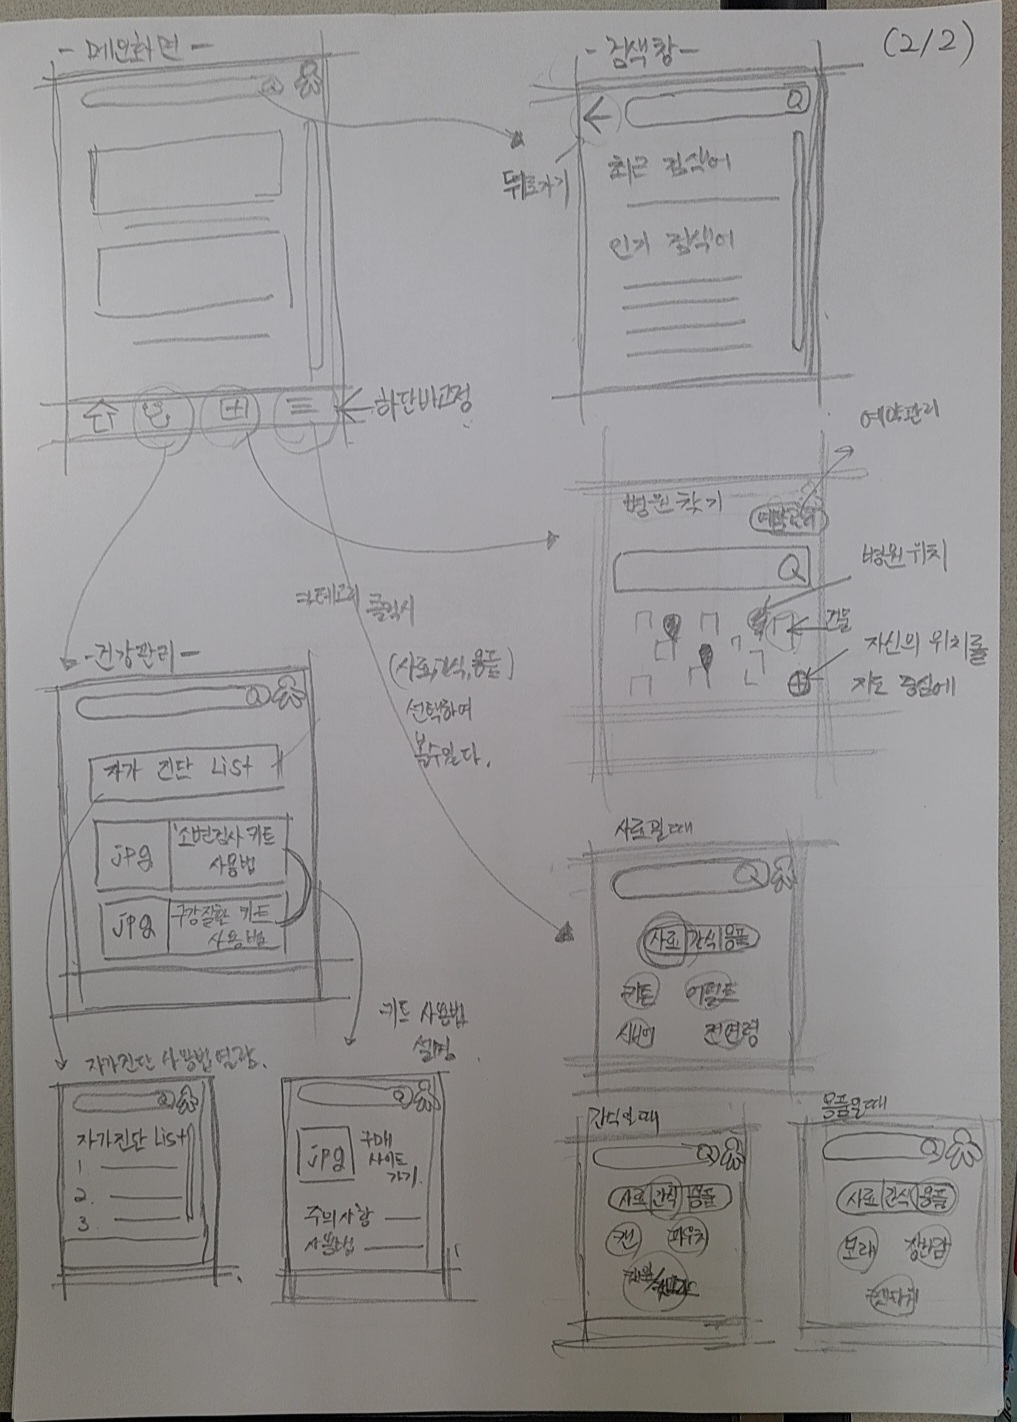 (2/2)
- 메인화면 -
하단바고정
- 검색창 -
뒤로가기
최근 검색어
인기 검색어
예약관리
병원찾기
예약관리
병원위치
건물
자신의 위치를
지도 중심에
카테고리 클릭시
(사료,간식,용품)
선택하여
- 건강관리 -
자가 진단 List
jpg
소변검사 키트
사용법
jpg
구강질환 키트
사용법
자가진단 사용법 열람.
자가진단 List
1
2.
3.
키트 사용법
설명.
jpg
구매
사이트
가기.
주의사항
사용법
사료일때
사료 간식 용품
키튼
어덜트
시니어
전연령
간식일때
사료 간식 용품
캔
파우치
용품일때
사료 간식 용품
모래
장난감